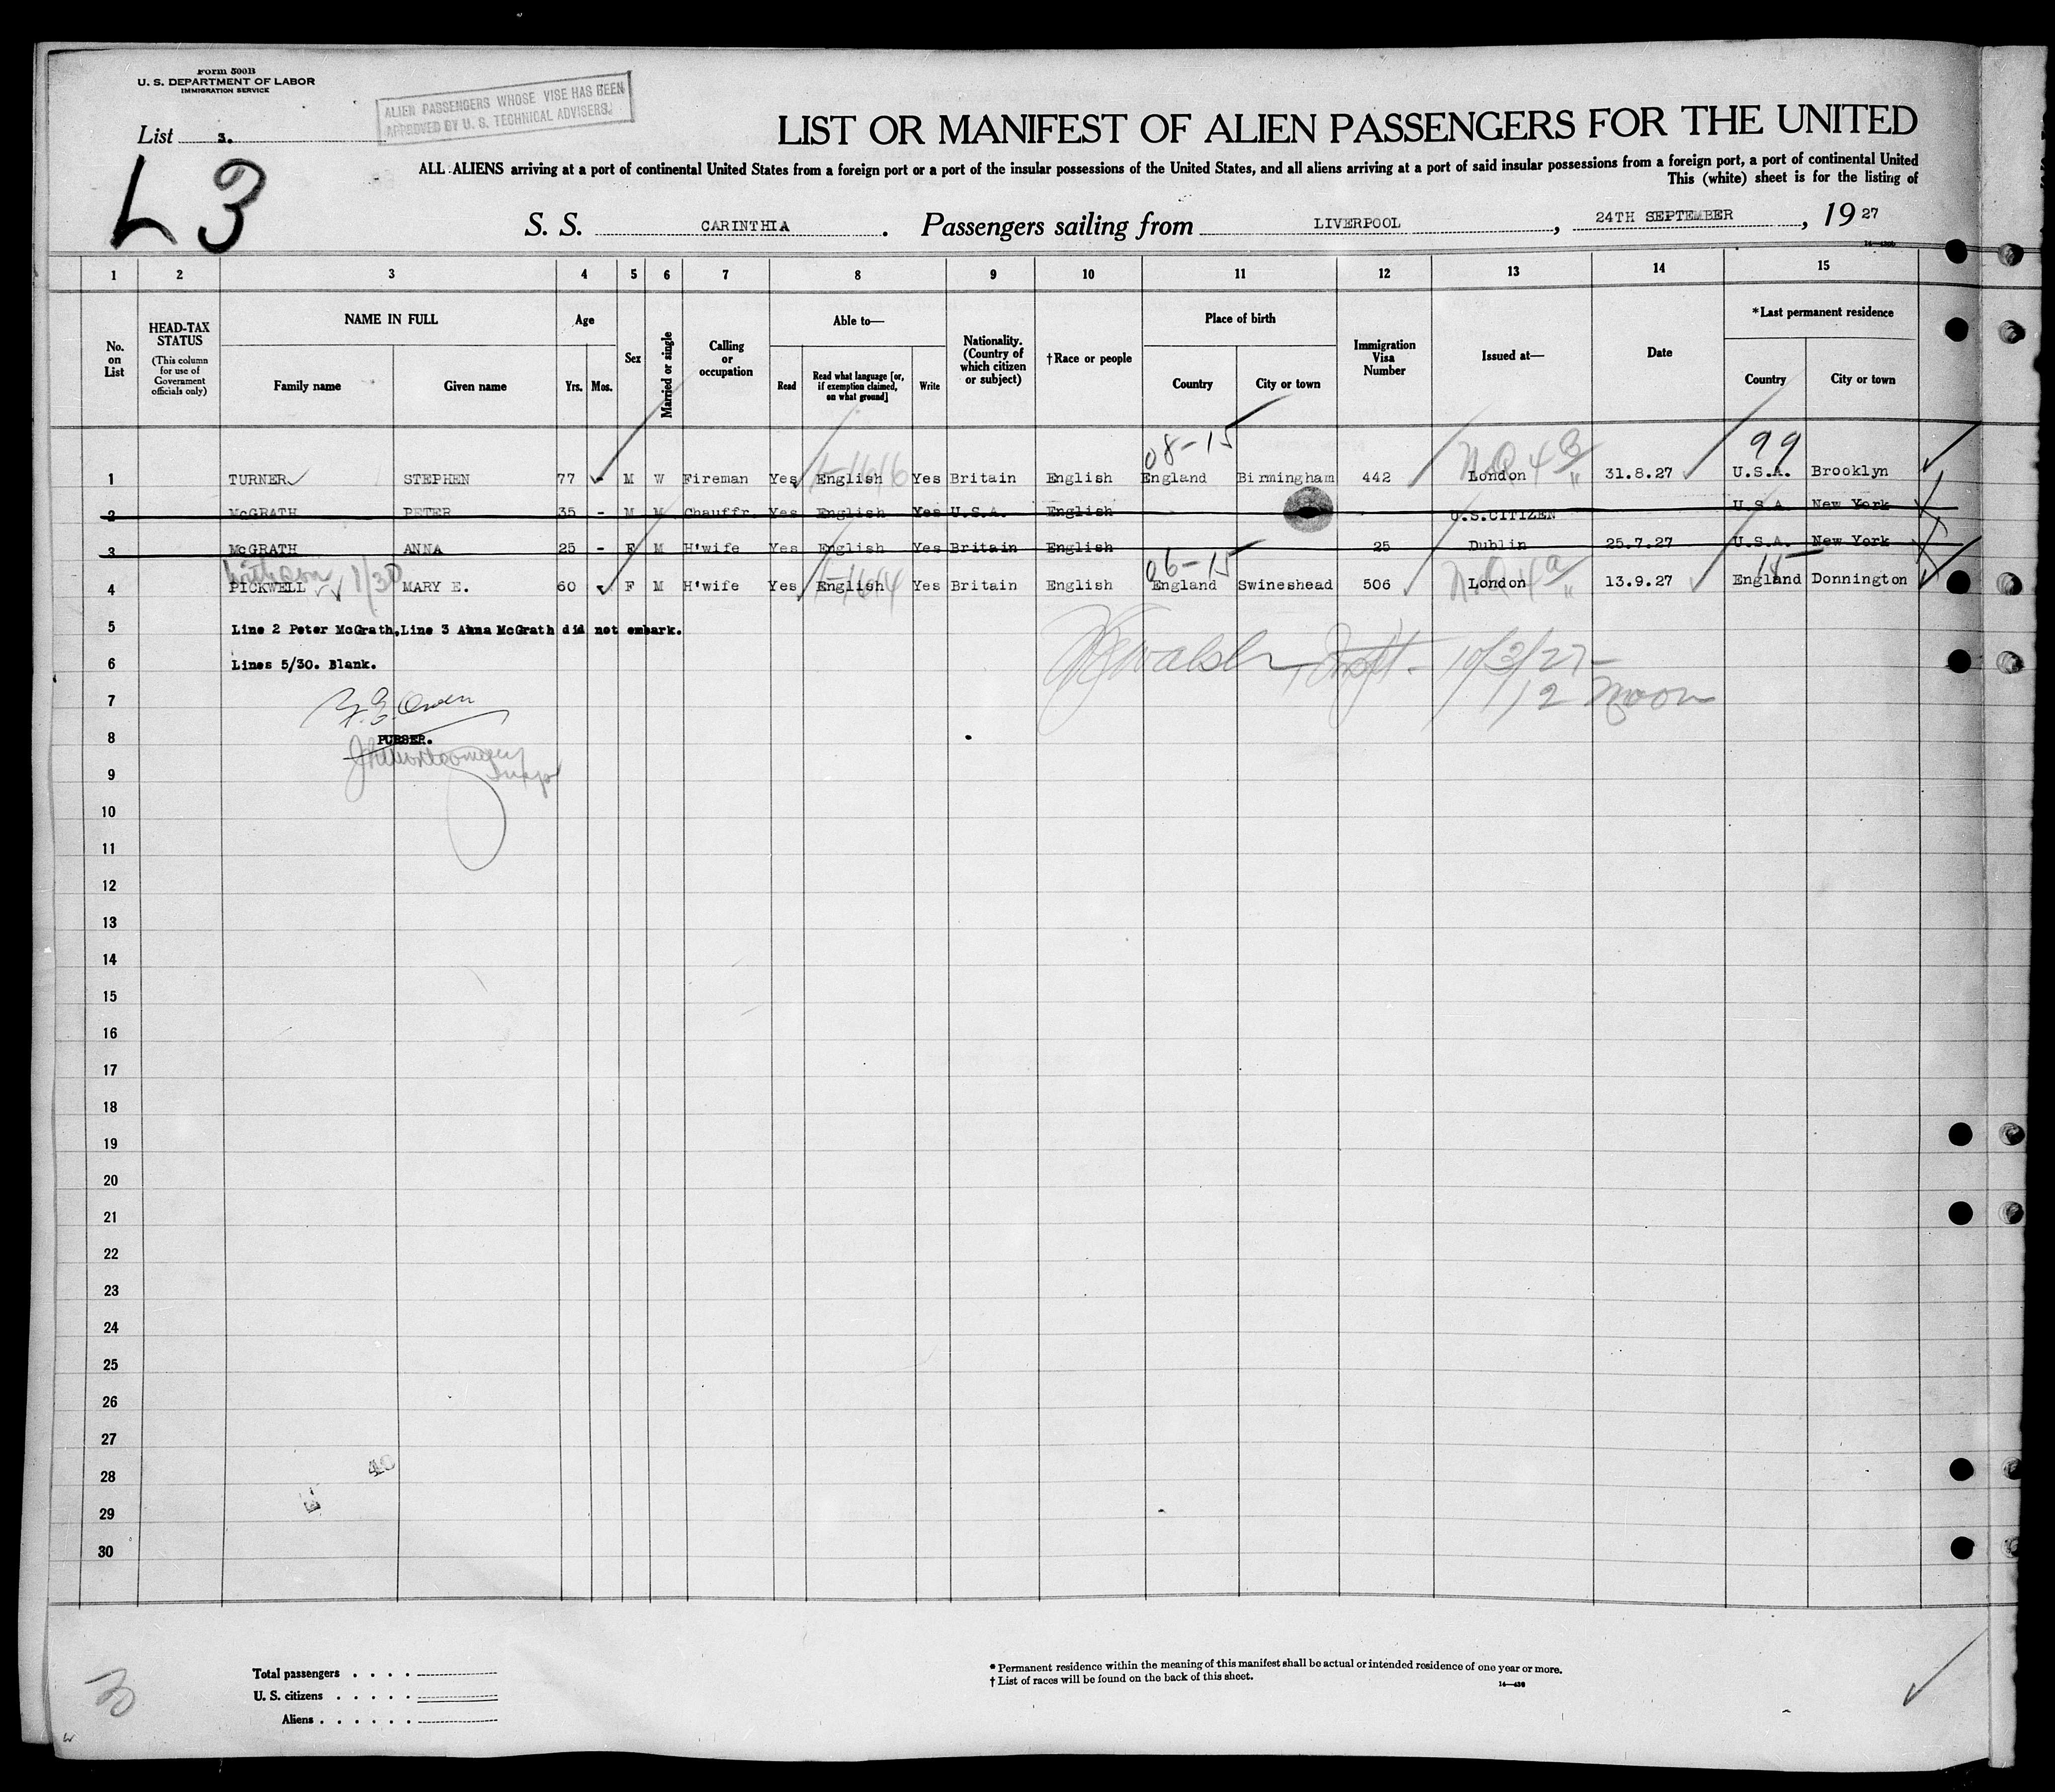 Form 500B
U. S. DEPARTMENT OF LABOR
IMMIGRATION SERVICE
ALIEN PASSENGERS WHOSE VISE HAS BEEN
APPROVED BY U. S. TECHNICAL ADVISERS.
List 3.
L 3
LIST OR MANIFEST OF ALIEN PASSENGERS FOR THE UNITED
ALL ALIENS arriving at a port of continental United States from a foreign port or a port of the insular possessions of the United States, and all aliens arriving at a port of said insular possessions from a foreign port, a port of continental United
This (white) sheet is for the listing of
S. S. CARINTHIA . Passengers sailing from LIVERPOOL , 24TH SEPTEMBER , 19 27
1 2 3 4 5 6 7 8 9 10 11 12 13 14 15
No. on List
HEAD-TAX STATUS
(This column for use of Government officials only)
NAME IN FULL
Family name Given name
Age
Yrs. Mos.
Sex
Married or single
Calling or occupation
Able to—
Read Read what language [or, if exemption claimed, on what ground] Write
Nationality. (Country of which citizen or subject)
†Race or people
Place of birth
Country City or town
Immigration Visa Number
Issued at—
Date
*Last permanent residence
Country City or town
08-15 99
1 TURNER STEPHEN 77 - M W Fireman Yes English Yes Britain English England Birmingham 442 London 31.8.27 U.S.A. Brooklyn
2 McGRATH PETER 35 - M M Chauffr. Yes English Yes U.S.A. English U.S.CITIZEN U.S.A. New York
3 McGRATH ANNA 25 - F M H'wife Yes English Yes Britain English 25 Dublin 25.7.27 U.S.A. New York
06-15 15
1/30
4 PICKWELL MARY E. 60 F M H'wife Yes English Yes Britain English England Swineshead 506 London 13.9.27 England Donnington
5 Line 2 Peter McGrath, Line 3 Anna McGrath did not embark.
6 Lines 5/30. Blank.
Walsh 10/3/27
12 Noon
7 Owen
8 PURSER.
9
10
11
12
13
14
15
16
17
18
19
20
21
22
23
24
25
26
27
28
29
30
Total passengers . . . .
U. S. citizens . . . . .
Aliens . . . . . .
* Permanent residence within the meaning of this manifest shall be actual or intended residence of one year or more.
† List of races will be found on the back of this sheet.
14—430
3